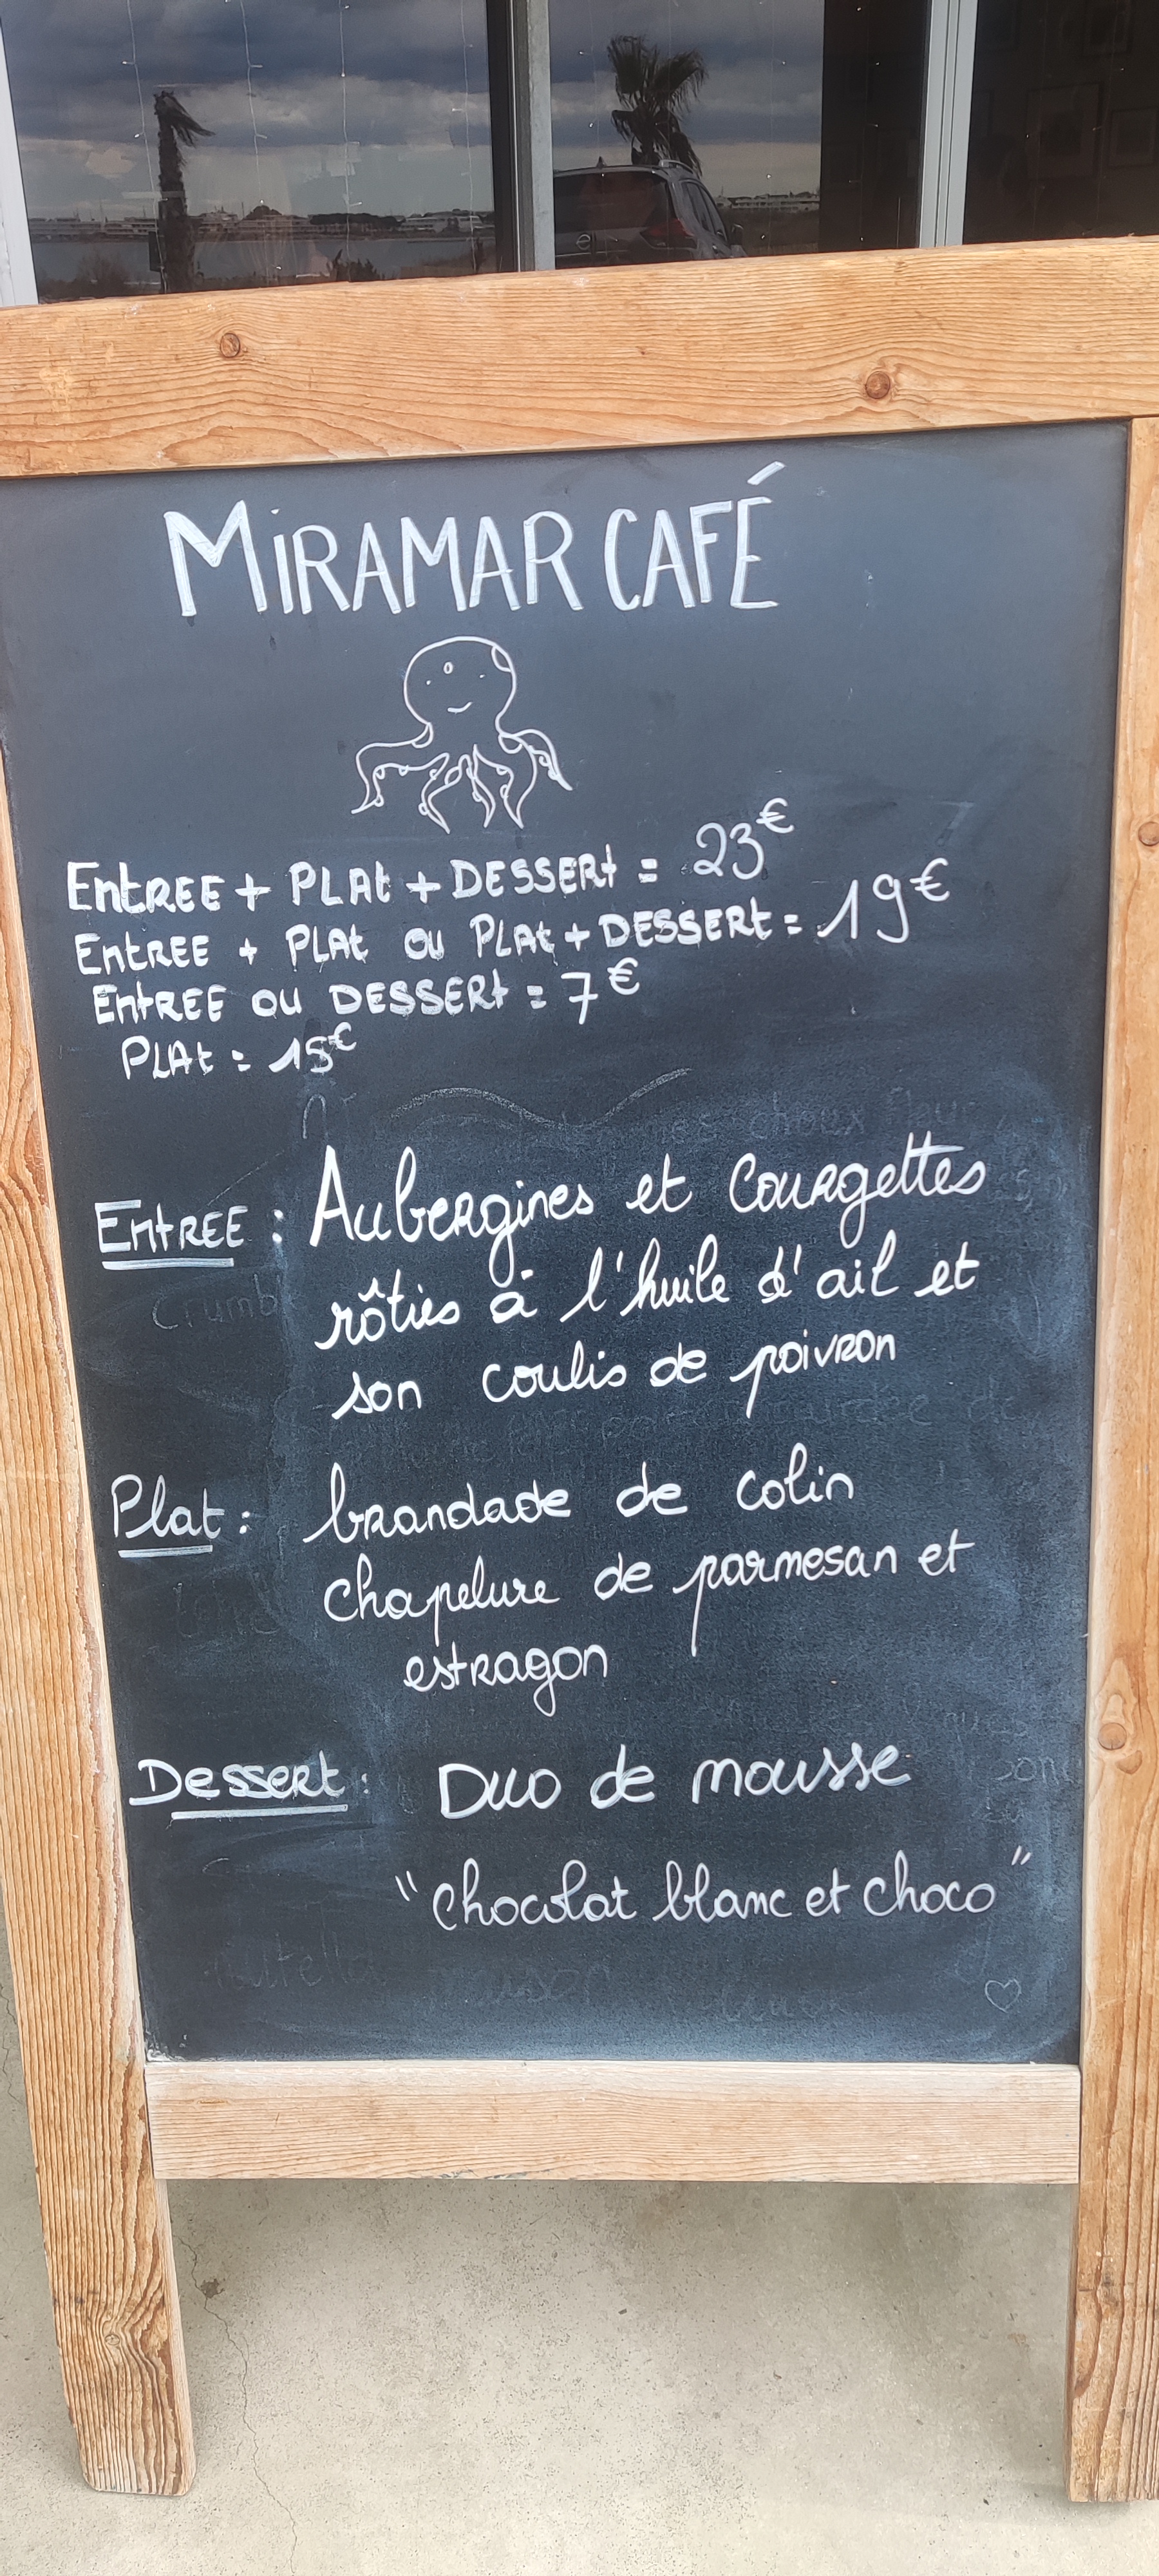 MiRAMAR CAFÉ
ENtREE + PLAt + DESSERt = 23€
ENtREE + PLAt OU PLAt + DESSERt = 19€
ENtREE OU DESSERt = 7€
PLAt = 15€
ENtREE : Aubergines et Courgettes
rôties à l'huile d'ail et
son coulis de poivron
Plat : brandade de colin
chapelure de parmesan et
estragon
Dessert : Duo de mousse
"chocolat blanc et choco"